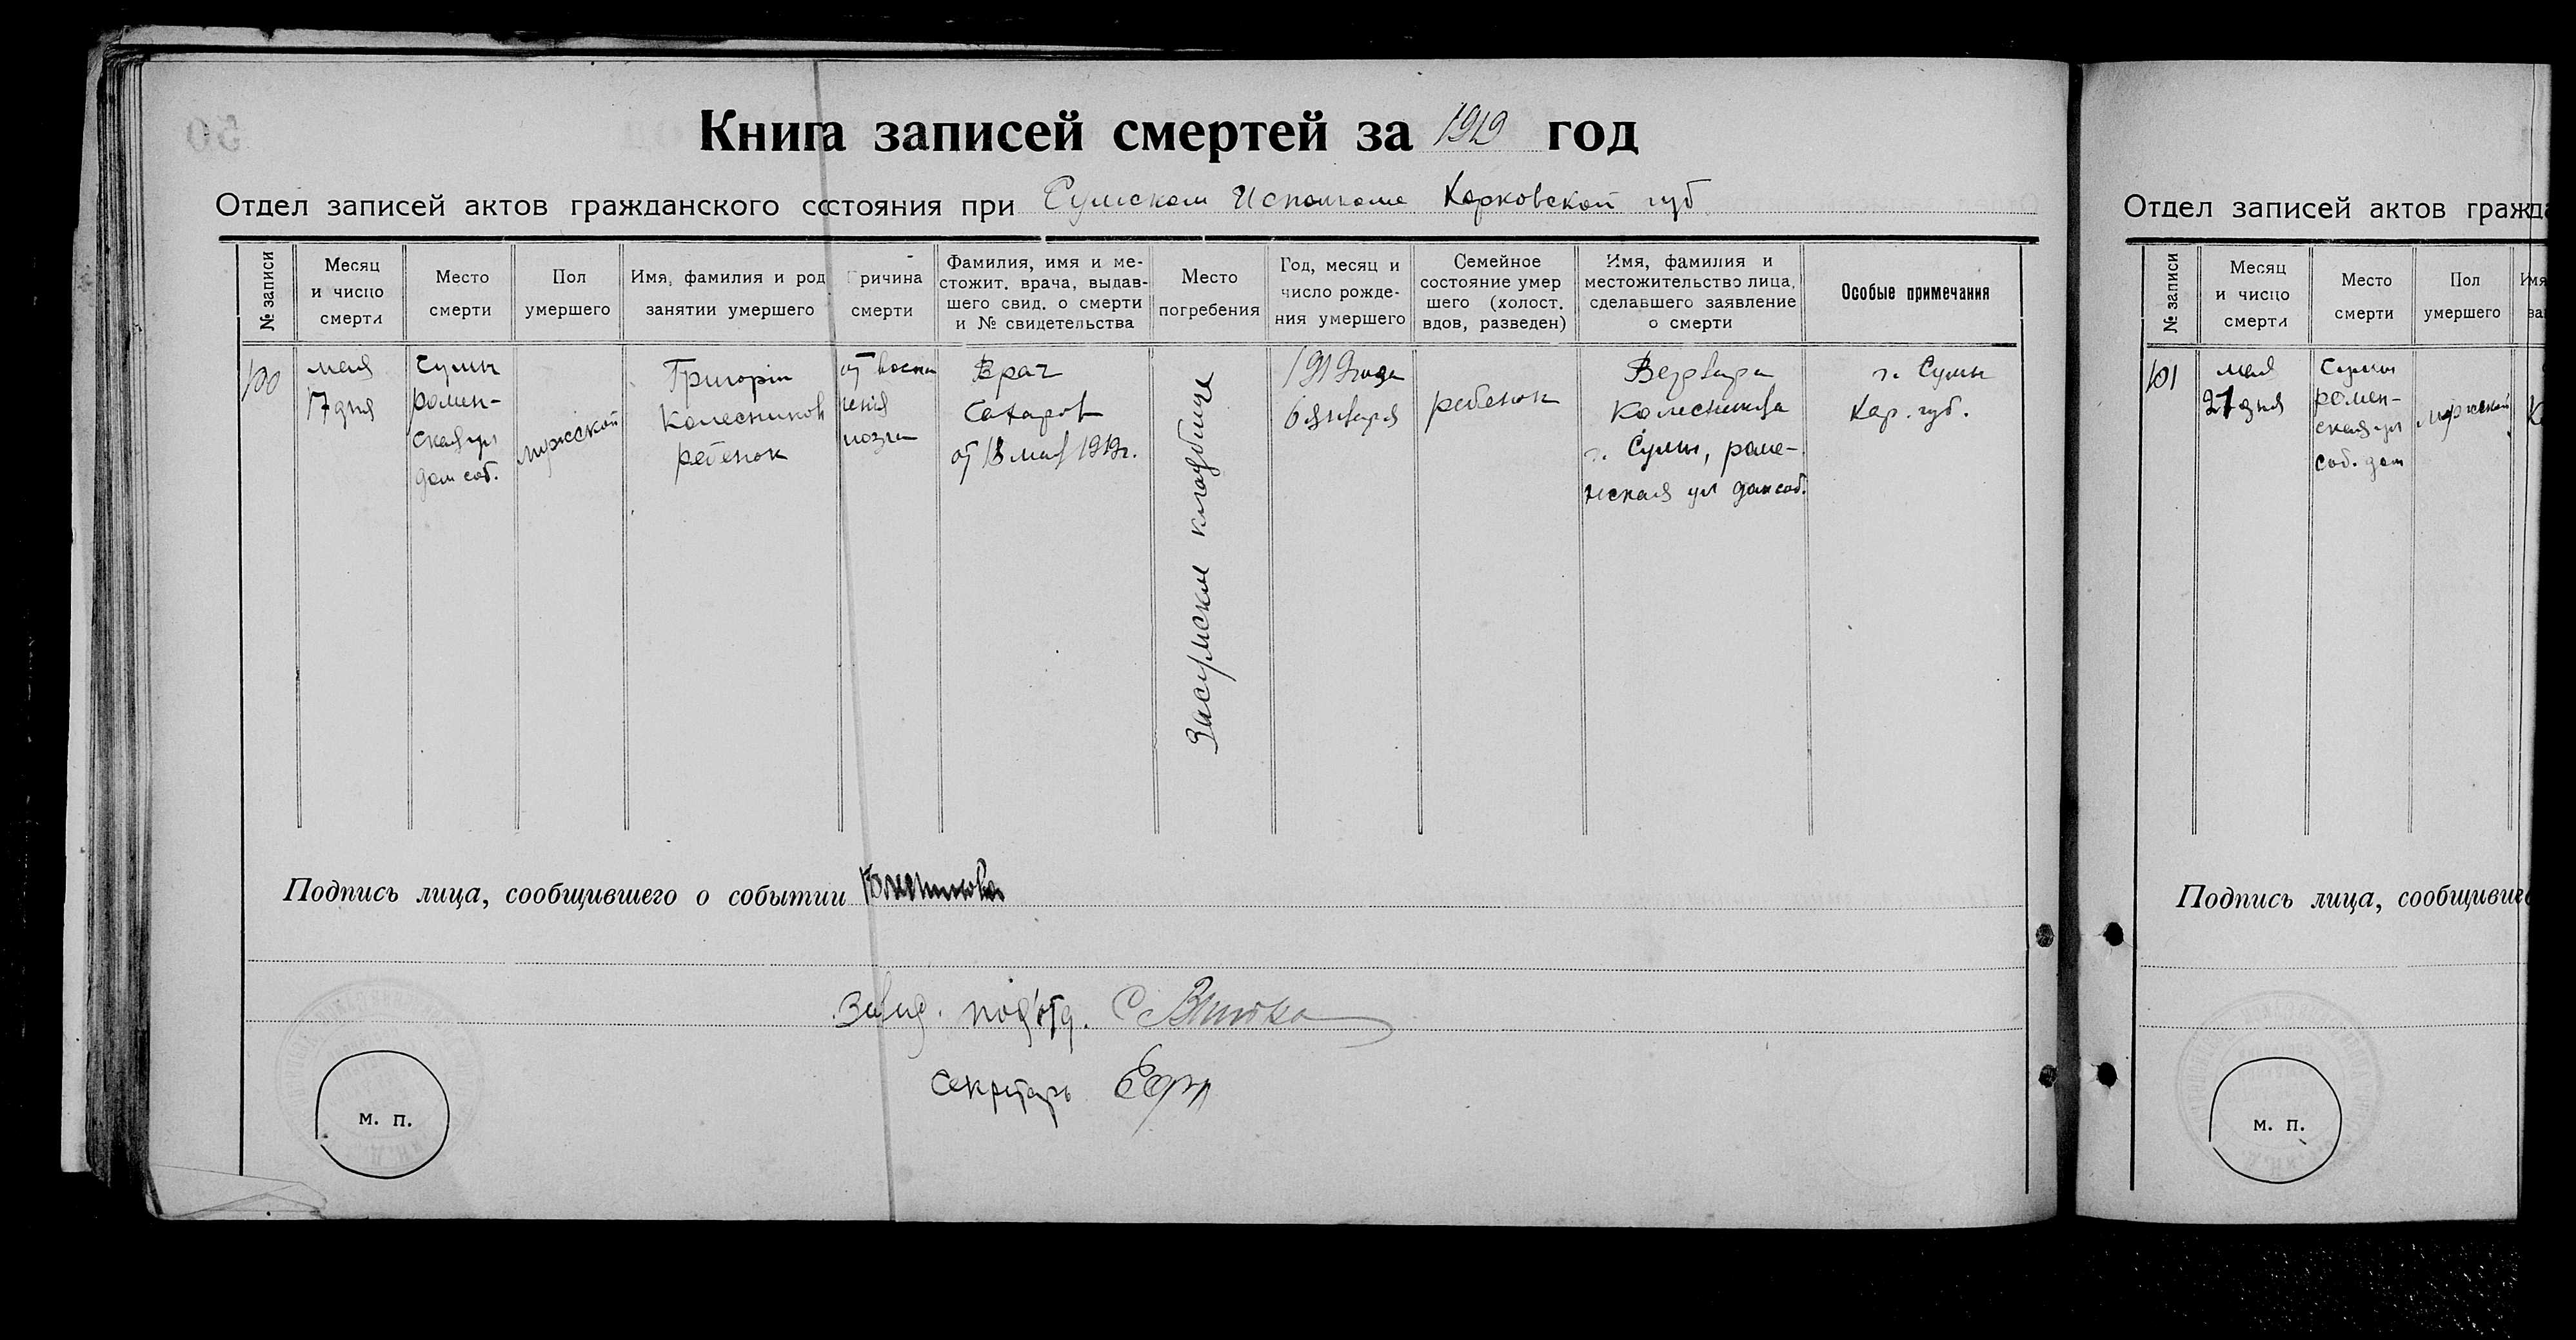 Книга записей смертей за 1919 год
Отдел записей актов гражданского состояния при Сумском Исполкоме Харковской губ
№ записи
Месяц
и число
смерти
Место
смерти
Пол
умершего
Имя, фамилия и род
занятии умершего
Причина
смерти
Фамилия, имя и ме-
стожит. врача, выдав-
шего свид. о смерти
и № свидетельства
Место
погребения
Год, месяц и
число рожде-
ния умершего
Семейное
состояние умер
шего (холост.
вдов, разведен)
Имя, фамилия и
местожительство лица,
сделавшего заявление
о смерти
Особые примечания
100
мая
17 дня
Сумы
ромен-
ская ул
дом соб.
мужской
Григорій
Колесников
ребенок
от воспа
ления
мозга
Врач
Сахаров
от 18 мая 1919 г.
Засумское кладбище
1919 года
6 января
ребенок
Колесникова
г. Сумы, роме-
нская ул дом соб.
г. Сумы
Хар. губ.
Подпись лица, сообщившего о событии Колесникова
Завед. под'отд.
Секретарь
м. п.
Отдел записей актов гражда
№ записи
Месяц
и число
смерти
Место
смерти
Пол
умершего
Имя
зан
101
мая
21 дня
Сумы
ромен-
ская ул
соб. дом
мужской
Подпись лица, сообщившего
м. п.